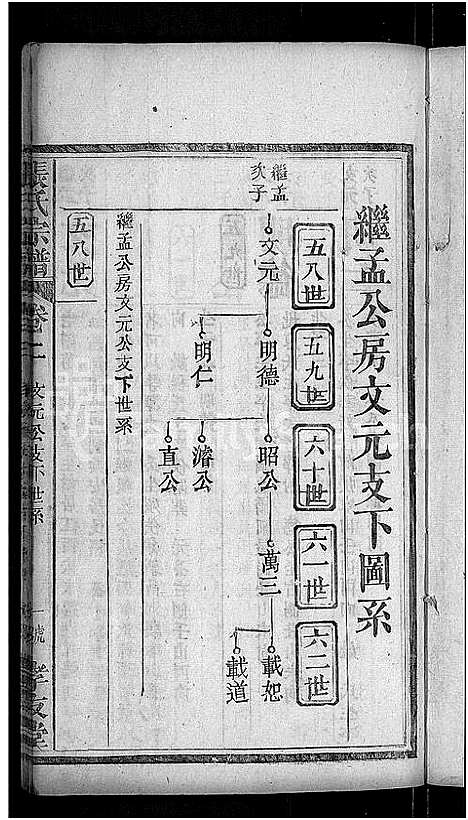 繼孟公房文元支下圖系
五八世
五九世
六十世
六一世
六二世
繼孟
次子
文元
明德
昭公
萬三
載恕
載道
明仁
濬公
直公
繼孟公房文元公支下世系
五八世
張氏宗譜
卷二
文元公支下世系
一號
孝友堂